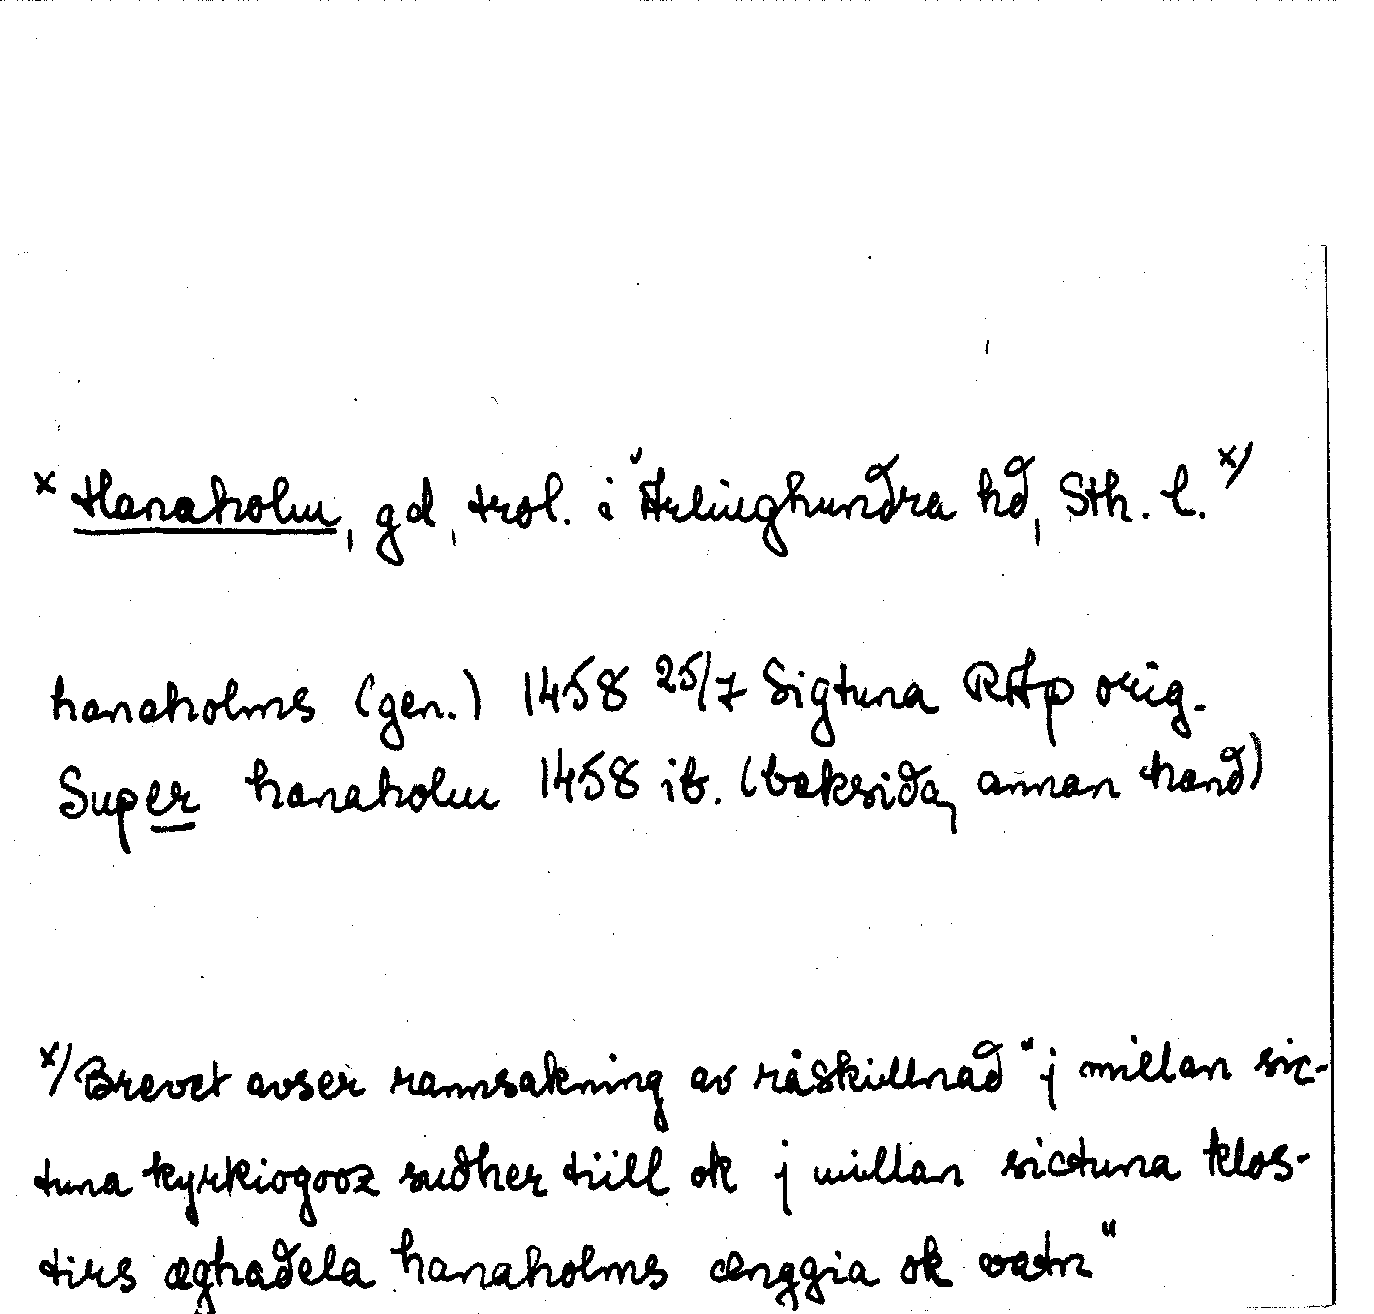 x Hanaholm, gd, trol. i Ärlinghundra hd, Sth. l. x)
hanaholms (gen.) 1458 25/7 Sigtuna RAp orig.
Super hanaholm 1458 ib. (baksida, annan hand)
x) Brevet avser rannsakning av råskillnad "j millan sic-
tuna kyrkiogooz sudher tiill ok j millan sictuna klos-
tirs æghadela hanaholms ænggia ok vatn"